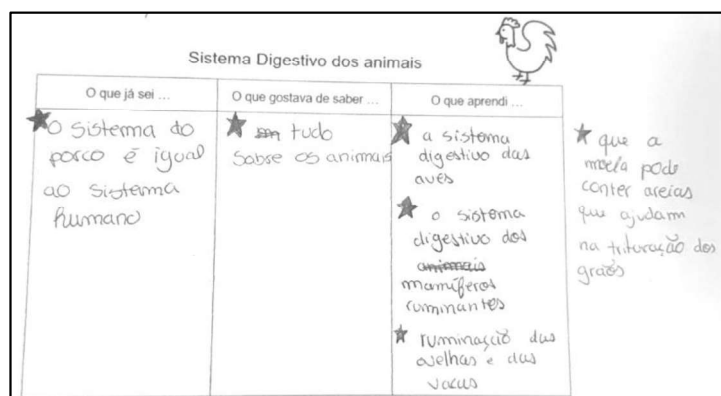 Sistema Digestivo dos animais
O que já sei ...
O que gostava de saber ...
O que aprendi ...
O sistema do
porco é igual
ao sistema
humano
tudo
sobre os animais
a sistema
digestivo das
aves
o sistema
digestivo dos
animais
mamíferos
ruminantes
ruminação das
ovelhas e das
vacas
que a
moela pode
conter areias
que ajudam
na trituração dos
graõs